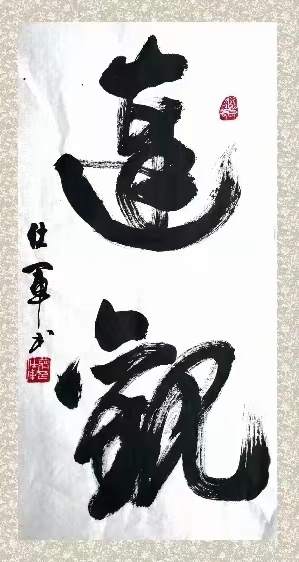 達觀
仕軍书